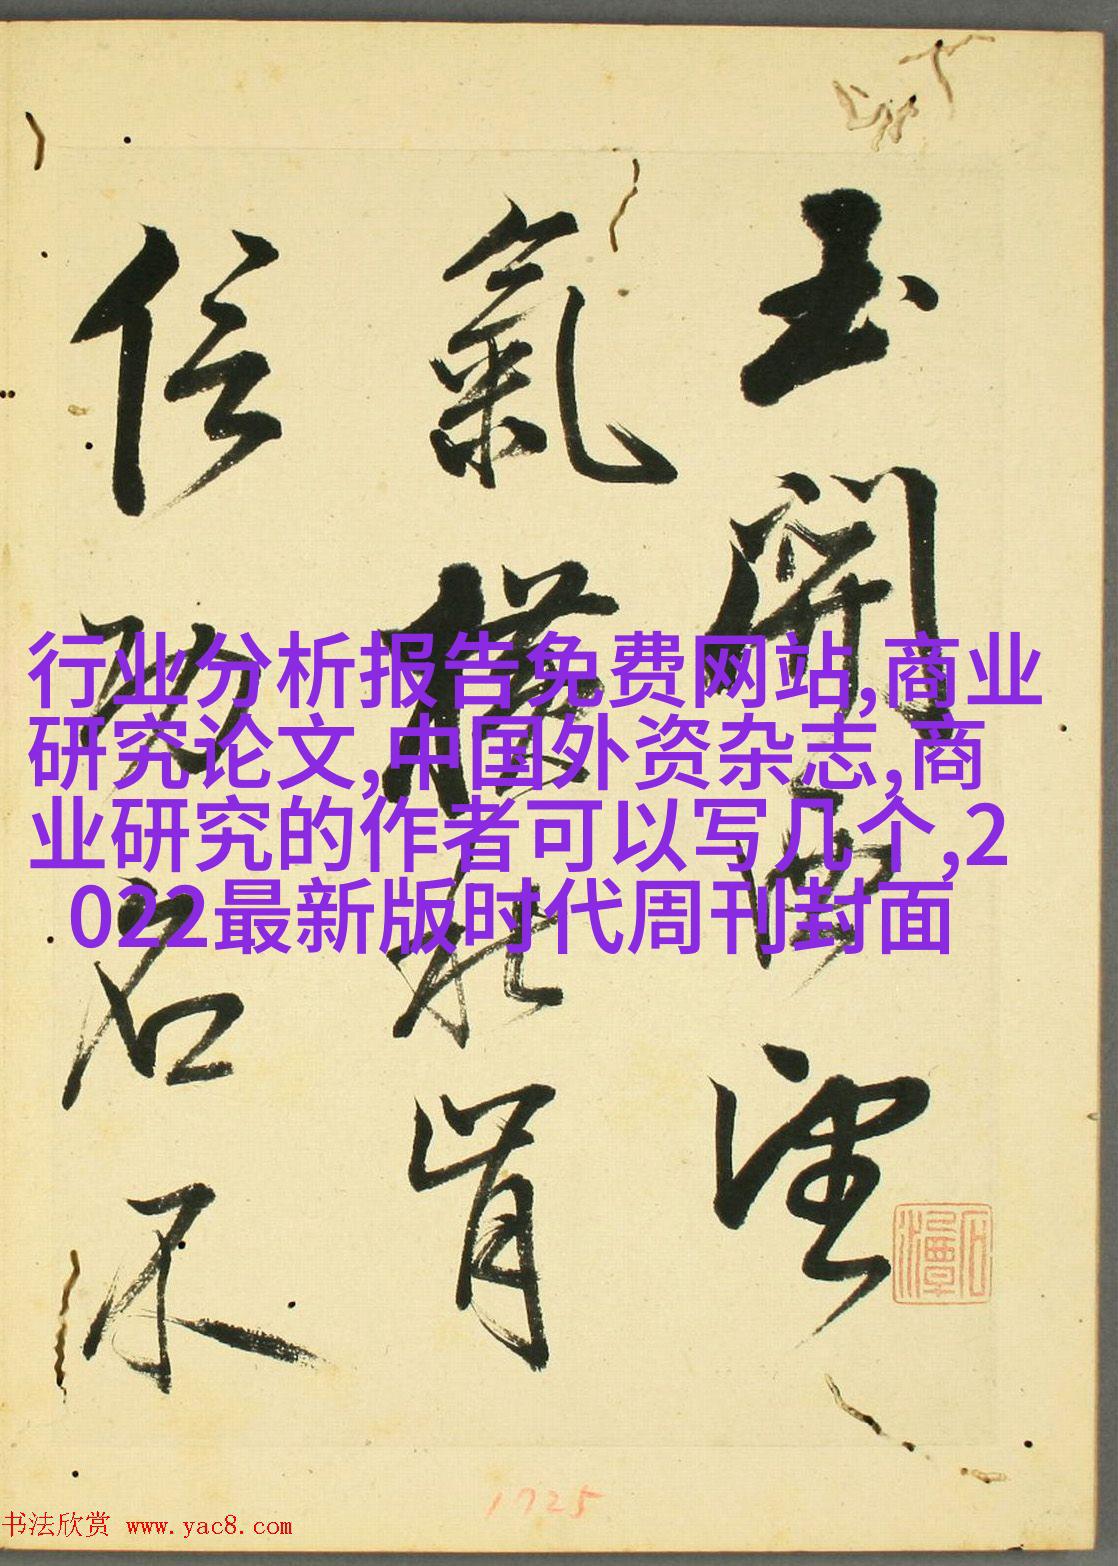 玉關西望
氣橫秋肯
信功名不
行业分析报告免费网站,商业
研究论文,中国外资杂志,商
业研究的作者可以写几个,2
022最新版时代周刊封面
1725
书法欣赏 www.yac8.com